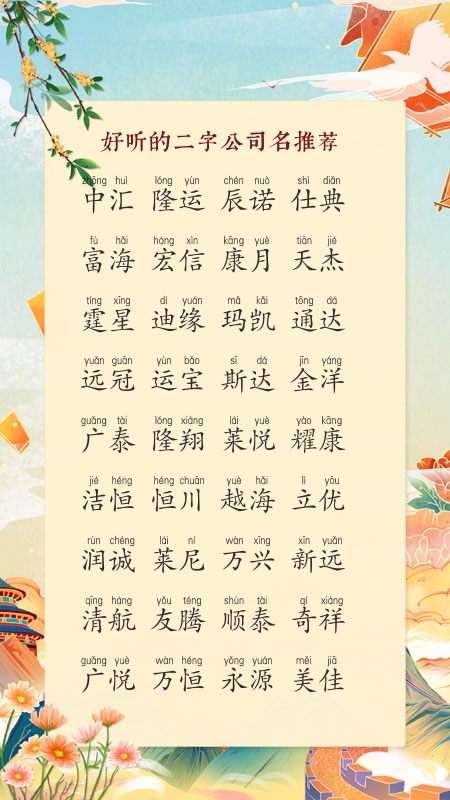 好听的二字公司名推荐
zhōng huì lóng yùn chén nuò shì diǎn
中汇 隆运 辰诺 仕典
fù hǎi hóng xìn kāng yuè tiān jié
富海 宏信 康月 天杰
tíng xīng dí yuán mǎ kǎi tōng dá
霆星 迪缘 玛凯 通达
yuǎn guān yùn bǎo sī dá jīn yáng
远冠 运宝 斯达 金洋
guǎng tài lóng xiáng lái yuè yào kāng
广泰 隆翔 莱悦 耀康
jié héng héng chuān yuè hǎi lì yōu
洁恒 恒川 越海 立优
rùn chéng lái ní wàn xīng xīn yuǎn
润诚 莱尼 万兴 新远
qīng háng yǒu téng shùn tài qí xiáng
清航 友腾 顺泰 奇祥
guǎng yuè wàn héng yǒng yuán měi jiā
广悦 万恒 永源 美佳